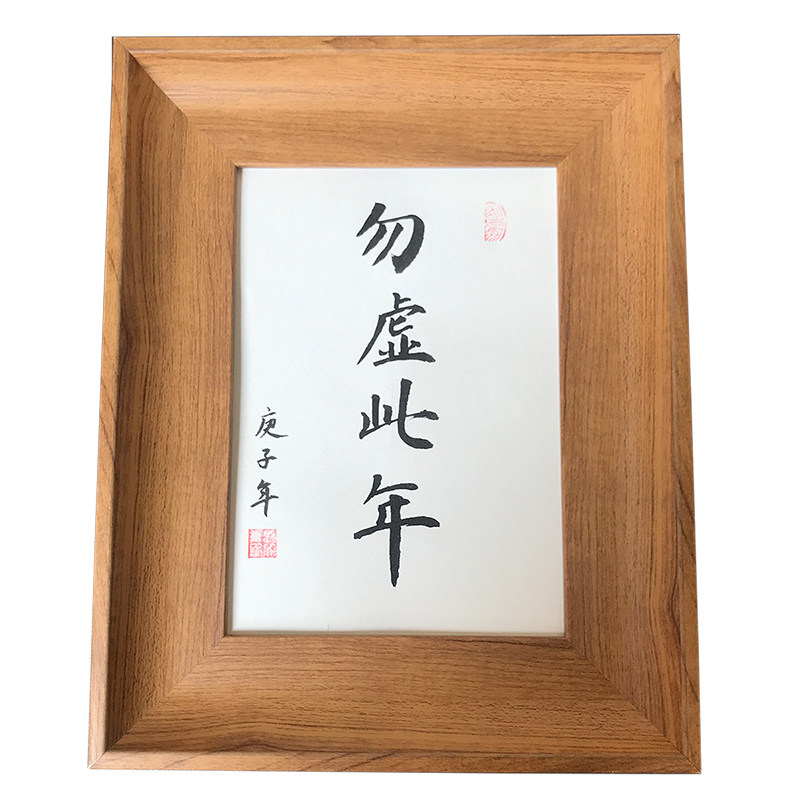 勿虚此年
庚子年